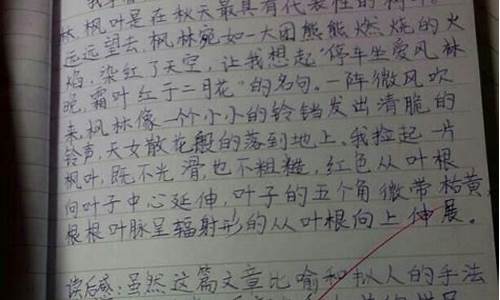 林,枫叶是在秋天最具有代表性的树叶。
远远望去,枫林宛如一大团熊熊燃烧的火
焰,染红了天空,让我想起“停车坐爱风林
晚,霜叶红于二月花”的名句。一阵微风吹
来,枫林像一个个小小的铃铛发出清脆的
铃声,天女散花般的落到地上。我捡起一片
枫叶,既不光滑,也不粗糙,红色从叶根
向叶子中心延伸,叶子的五个角微带枯黄,
根根叶脉呈辐射形的从叶根向上伸展。
读后感:虽然这篇文章比喻和拟人的手法